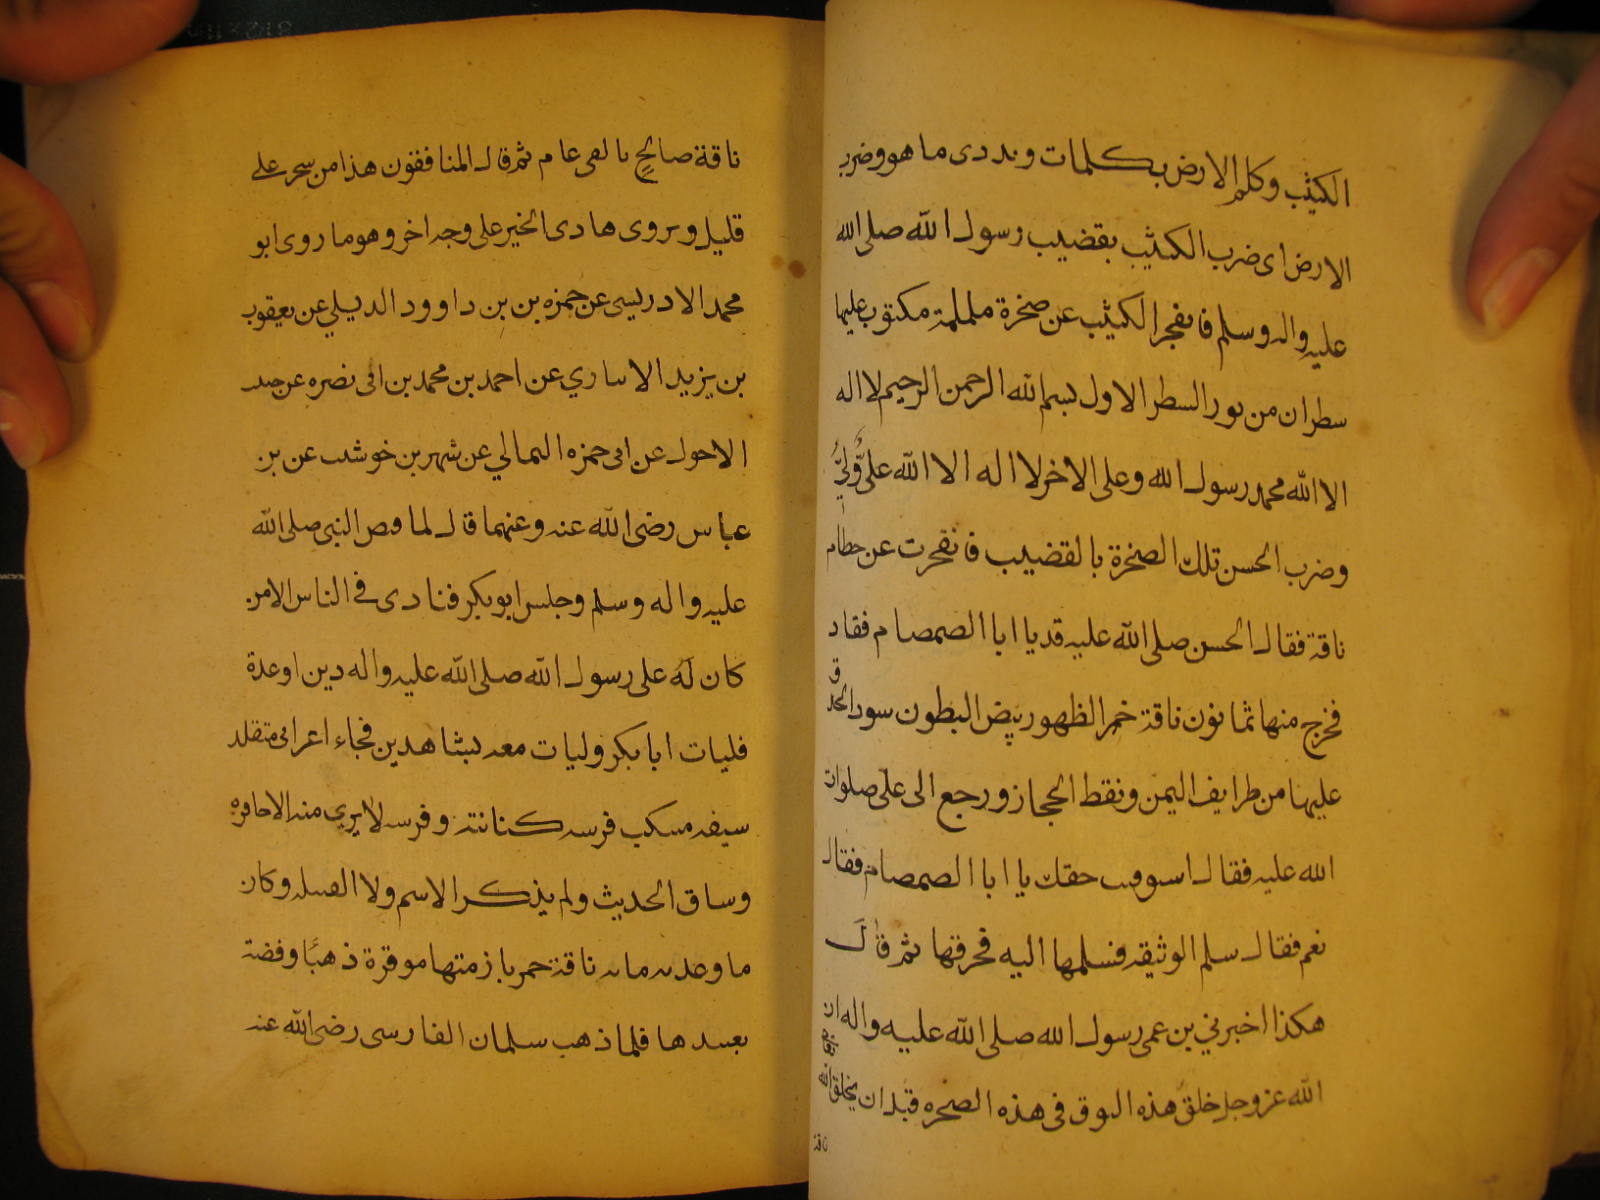 الكثيب وكلم الارض بكلمات وندري ما هو وضرب
الارض اي ضرب الكثيب بقضيب رسول الله صلى الله
عليه واله وسلم فانفجر الكثيب عن صخرة ململمة مكتوب عليها
سطران من نور السطر الاول بسم الله الرحمن الرحيم لا اله
الا الله محمد رسول الله وعلى الاخر لا اله الا الله علي ولي
وضرب الحسن تلك الصخرة بالقضيب فانفجرت عن خطام
ناقة فقال الحسن صلى الله عليه قد يا ابا الصمصام فقاد
فخرج منها ثمانون ناقة حمر الظهور بيض البطون سود الحدق
عليها من طرايف اليمن ونقط الحجاز ورجع الى علي صلوات
الله عليه فقال استوفيت حقك يا ابا الصمصام فقال
نعم فقال سلم الوثيقة فسلمها اليه فخرقها ثم قال
هكذا اخبرني بن عمي رسول الله صلى الله عليه واله ان
الله عز وجل خلق هذه النوق في هذه الصخرة قبل ان يخلق الله ناقة
ناقة
ناقة صالح بالفي عام ثم قال المنافقون هذا من سحر علي
قليل وبروى هادى الخبر على وجه اخر وهو ما روى ابو
محمد الادريسي عن حمزه بن بن داوود الديلي عن يعقوب
بن يزيد الانباري عن احمد بن محمد بن ابى نصره عن
الاحول عن ابى حمزه الثمالي عن شهر بن خوشب عن بن
عباس رضى الله عنه وعنهما قال لما قبض النبى صلى الله
عليه واله وسلم وجلس ابو بكر فنادى في الناس الا من
كان له على رسول الله صلى الله عليه واله دين او عدة
فليات ابا بكر وليات معه بشاهدين فجاء اعرابى متقلد
سيفه متنكب فرسه كنانته وفرسه لا يرى منه الا حافره
وساق الحديث ولم يذكر الاسم ولا القبيلة وكان
ما وعده مايه ناقة حمر بازمتها موقرة ذهبا وفضة
بعبيدها فلما ذهب سلمان الفارسى رضى الله عنه